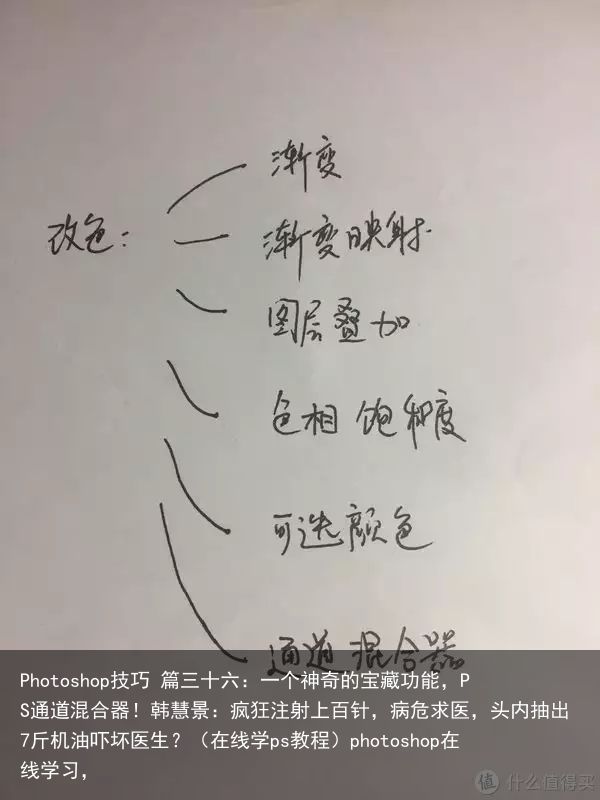 渐变
改色：
渐变映射
图层叠加
色相 饱和度
可选颜色
通道混合器
Photoshop技巧 篇三十六：一个神奇的宝藏功能，P
S通道混合器！韩慧景：疯狂注射上百针，病危求医，头内抽出
7斤机油吓坏医生？（在线学ps教程）photoshop在
线学习，
值 什么值得买